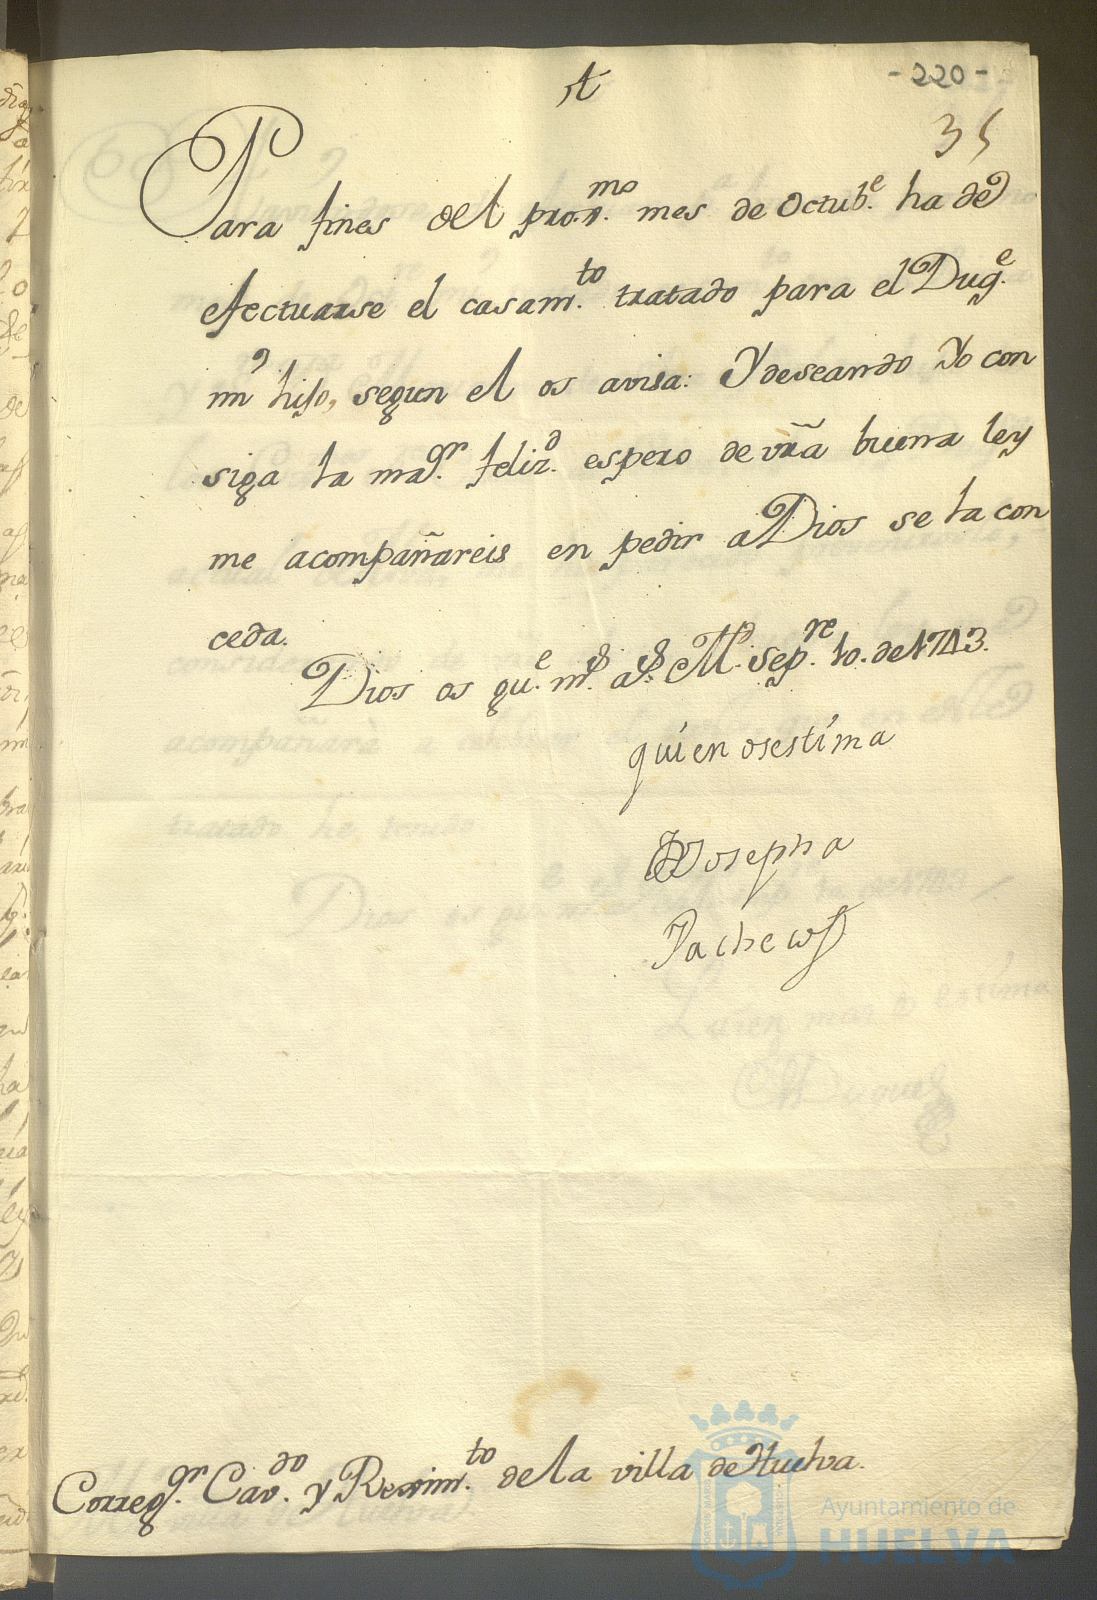 -220-
35
Para fines del pro.x.mo mes de Octub.e ha de
efectuarse el casam.to tratado para el Duq.e
mi hijo, segun el os avisa: Y deseando Yo con
siga la ma.or feliz.d espero de vr̃a buena ley
me acompañareis en pedir a Dios se la con
ceda.
Dios os gu.e m.s a.s M.d Sep.re 10. de 1743.
quien os estima
Josepha
Pacheco
Correg.or Cav.do y Reximi.to de la villa de Huelva.
Ayuntamiento de
HUELVA